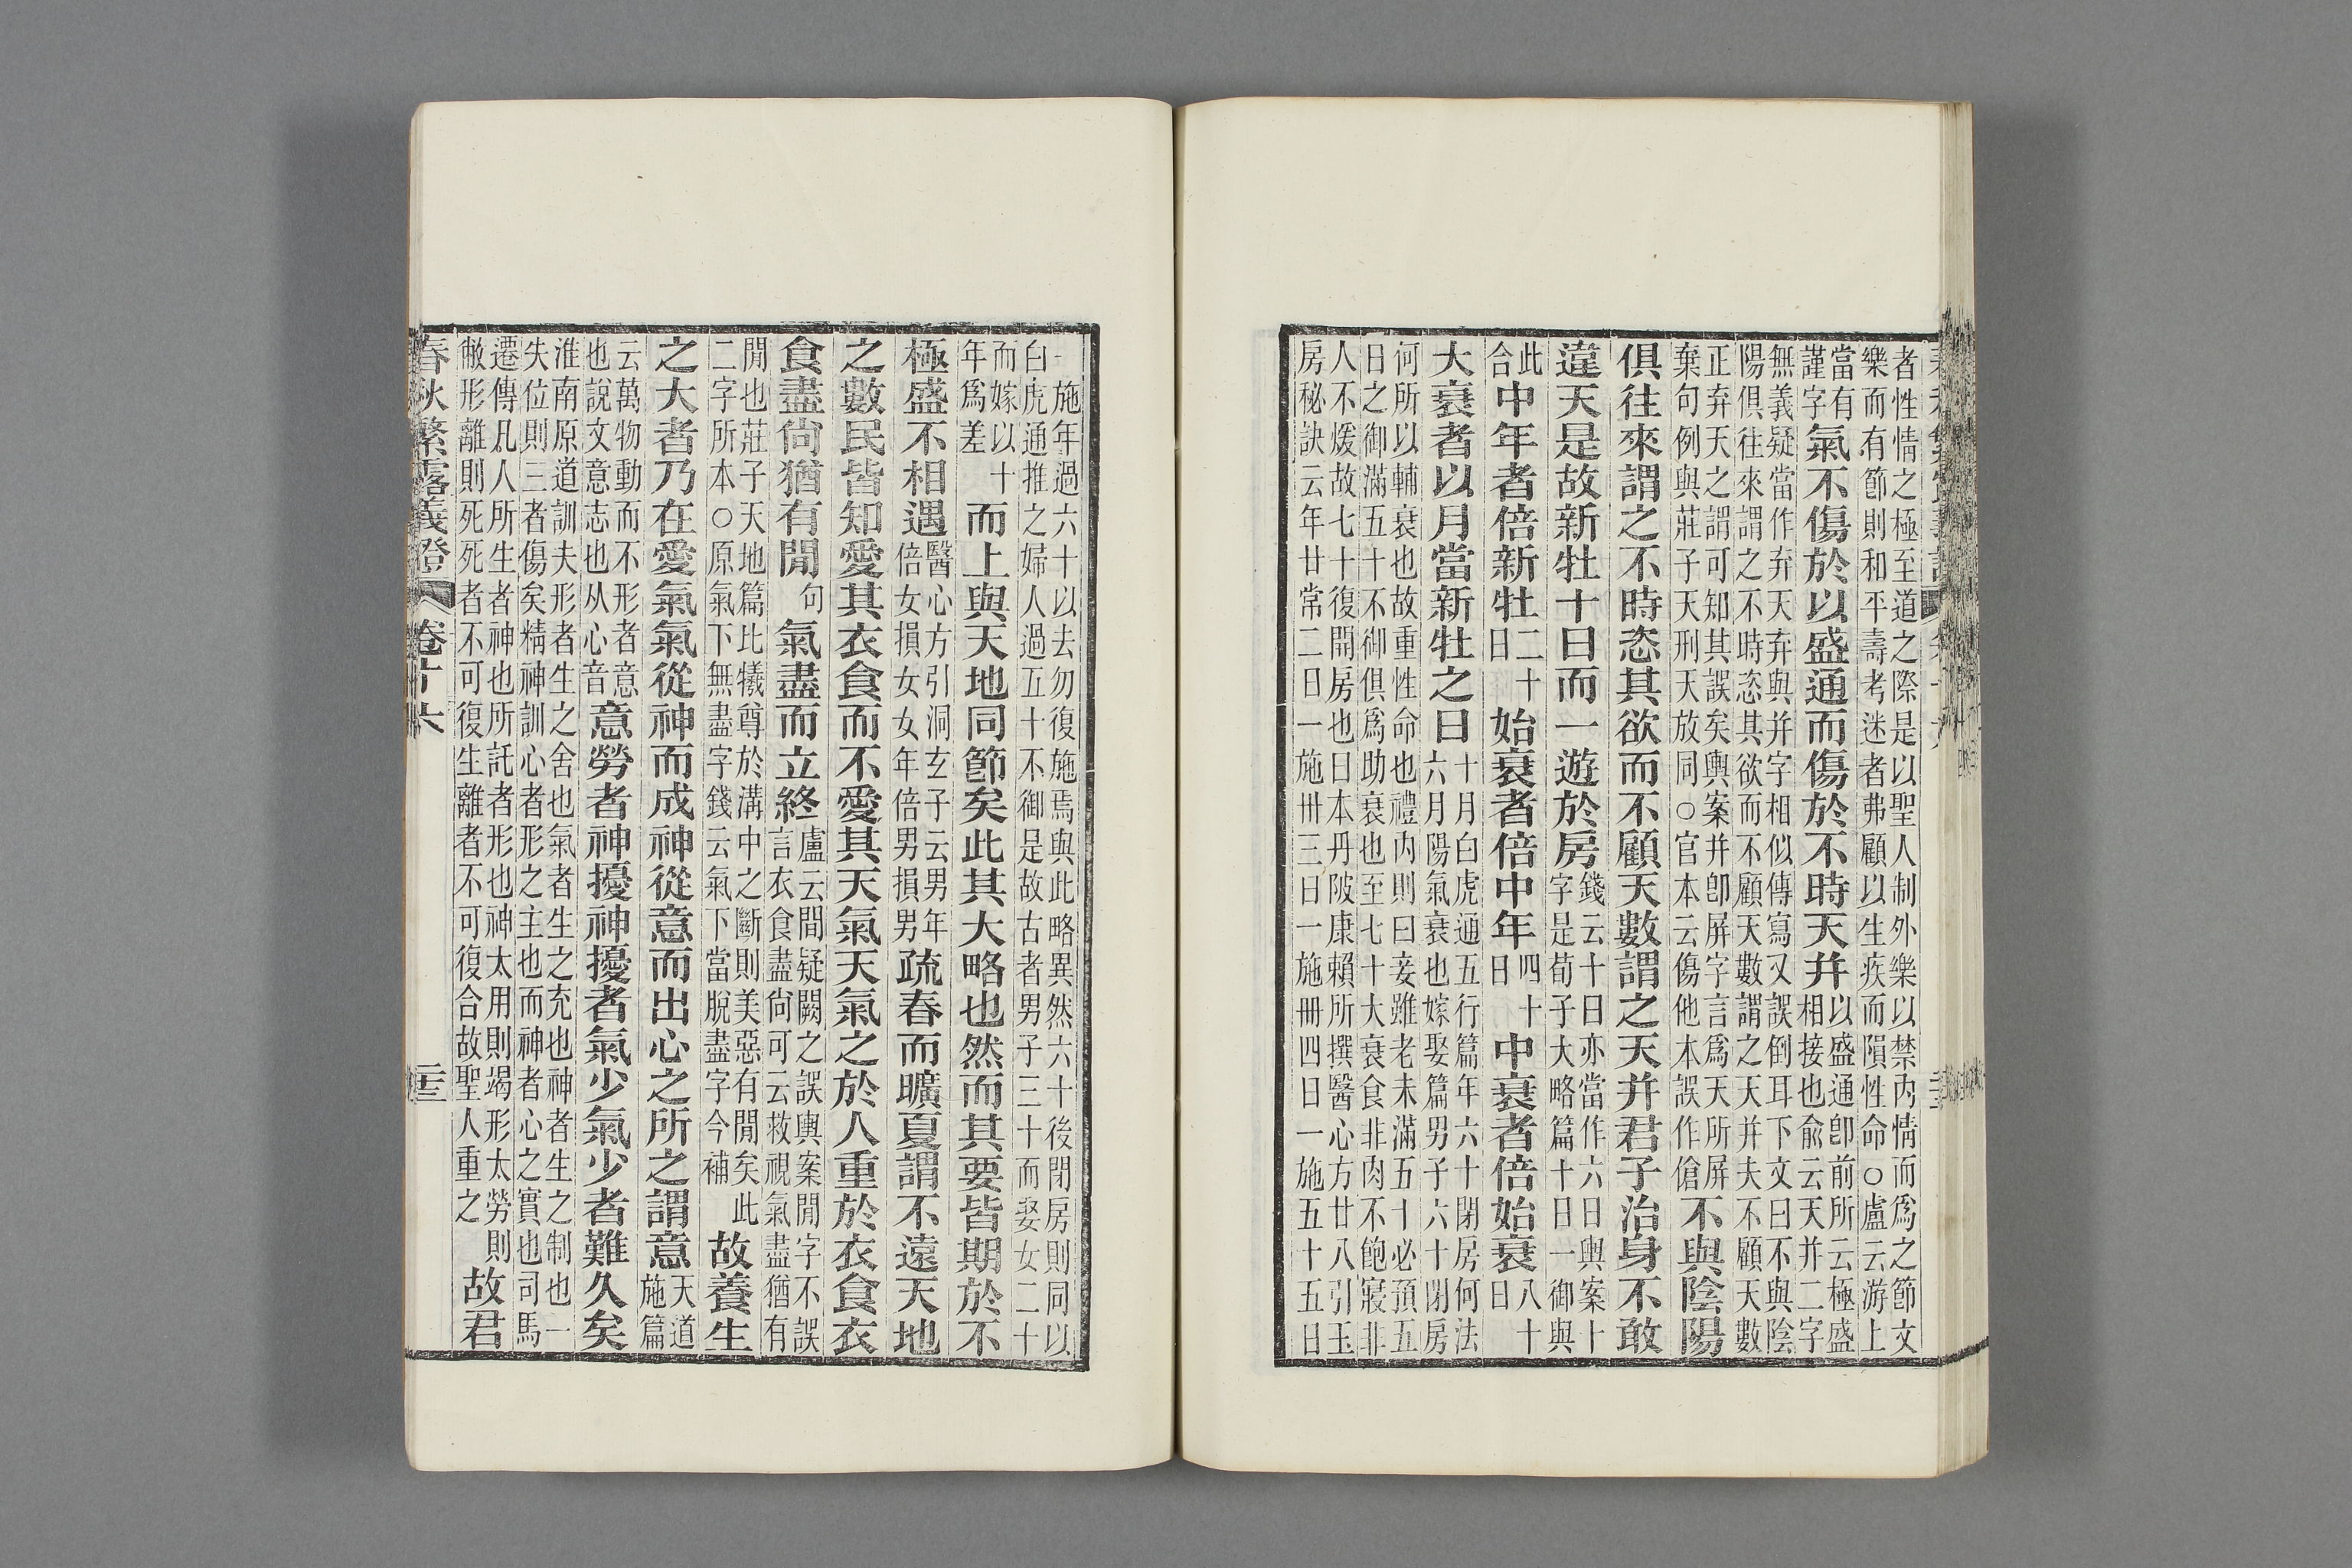 者性情之極至道之際是以聖人制外樂以禁內情而爲之節文
樂而有節則和平壽考迷者弗顧以生疾而隕性命○盧云游上
當有謹字氣不傷於以盛通而傷於不時天并以盛通卽前所云極盛相接也俞云天并二字
無義疑當作弃天弃與并字相似傳寫又誤倒耳下文曰不與陰
陽俱往來謂之不時恣其欲而不顧天數謂之天并夫不顧天數
正弃天之謂可知其誤矣輿案并卽屏字言爲天所屏
棄句例與莊子天刑天放同○官本云傷他本誤作傖不與陰陽
俱往來謂之不時恣其欲而不顧天數謂之天并君子治身不敢
違天是故新牡十日而一遊於房錢云十日亦當作六日輿案十字是荀子大略篇十日一御與
此合中年者倍新牡二十日始衰者倍中年四十日中衰者倍始衰八十日
大衰者以月當新牡之日十月白虎通五行篇年六十閉房何法六月陽氣衰也嫁娶篇男子六十閉房
何所以輔衰也故重性命也禮内則曰妾雖老未滿五十必預五
日之御滿五十不御俱爲助衰也至七十大衰食非肉不飽寢非
人不煖故七十復開房也日本丹陂康賴所撰醫心方廿八引玉
房秘訣云年廿常二日一施卅三日一施冊四日一施五十五日
一施年過六十以去勿復施焉與此略異然六十後閉房則同以
白虎通推之婦人過五十不御是故古者男子三十而娶女二十
而嫁以十年爲差而上與天地同節矣此其大略也然而其要皆期於不
極盛不相遇醫心方引洞玄子云男年倍女損女女年倍男損男疏春而曠夏謂不遠天地
之數民皆知愛其衣食而不愛其天氣天氣之於人重於衣食衣
食盡尚猶有閒句氣盡而立終盧云間疑闕之誤輿案閒字不誤言衣食盡尚可云救視氣盡猶有
閒也莊子天地篇比犧尊於溝中之斷則美惡有閒矣此
二字所本○原氣下無盡字錢云氣下當脫盡字今補故養生
之大者乃在愛氣氣從神而成神從意而出心之所之謂意天道施篇
云萬物動而不形者意也說文意志也从心音意勞者神擾神擾者氣少氣少者難久矣
淮南原道訓夫形者生之舍也氣者生之充也神者生之制也一
失位則三者傷矣精神訓心者形之主也而神者心之實也司馬
遷傳凡人所生者神也所託者形也神太用則竭形太勞則
敝形離則死死者不可復生離者不可復合故聖人重之故君
春秋繁露義證 卷十六 二十三